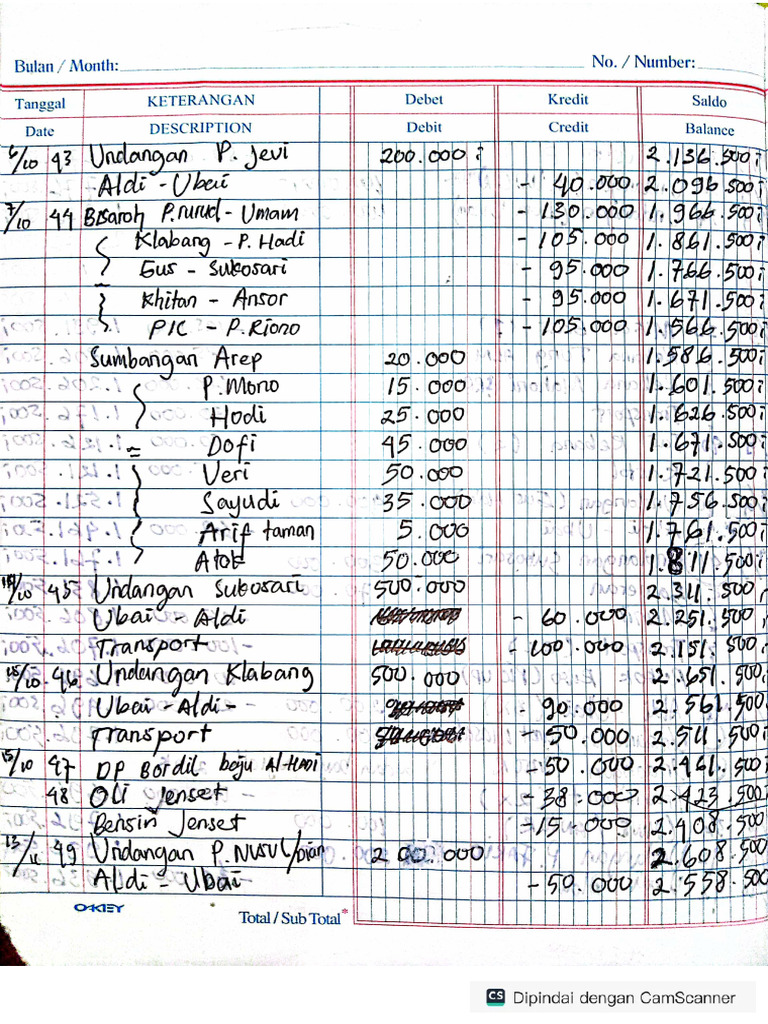 Bulan / Month: No. / Number:
Tanggal KETERANGAN Debet Kredit Saldo
Date DESCRIPTION Debit Credit Balance
6/10 43 Undangan P. Jevi 200.000 2.136.500
Aldi - Ubai - 40.000 2.096.500
7/10 44 Bisaroh P. - Umam - 130.000 1.966.500
Klabang - P. Hadi - 105.000 1.861.500
Gus - Sukosari - 95.000 1.766.500
Khitan - Ansor - 95.000 1.671.500
PIC - P. Riono - 105.000 1.566.500
Sumbangan Arep 20.000 1.586.500
P. Mono 15.000 1.601.500
Hodi 25.000 1.626.500
= Dofi 45.000 1.671.500
Veri 50.000 1.721.500
Sayudi 35.000 1.756.500
Arif taman 5.000 1.761.500
Atok 50.000 1.811.500
/10 45 Undangan Sukosari 500.000 2.311.500
Ubai - Aldi - 60.000 2.251.500
Transport - 100.000 2.151.500
15/10 46 Undangan Klabang 500.000 2.651.500
Ubai - Aldi - - 90.000 2.561.500
Transport - 50.000 2.511.500
15/10 47 DP Bordil baju Al-Hadi - 50.000 2.461.500
48 Oli Jenset - 38.000 2.423.500
Bensin Jenset - 15.000 2.408.500
13/11 49 Undangan P. 200.000 2.608.500
Aldi - Ubai - 50.000 2.558.500
OKEY Total / Sub Total*
CS Dipindai dengan CamScanner